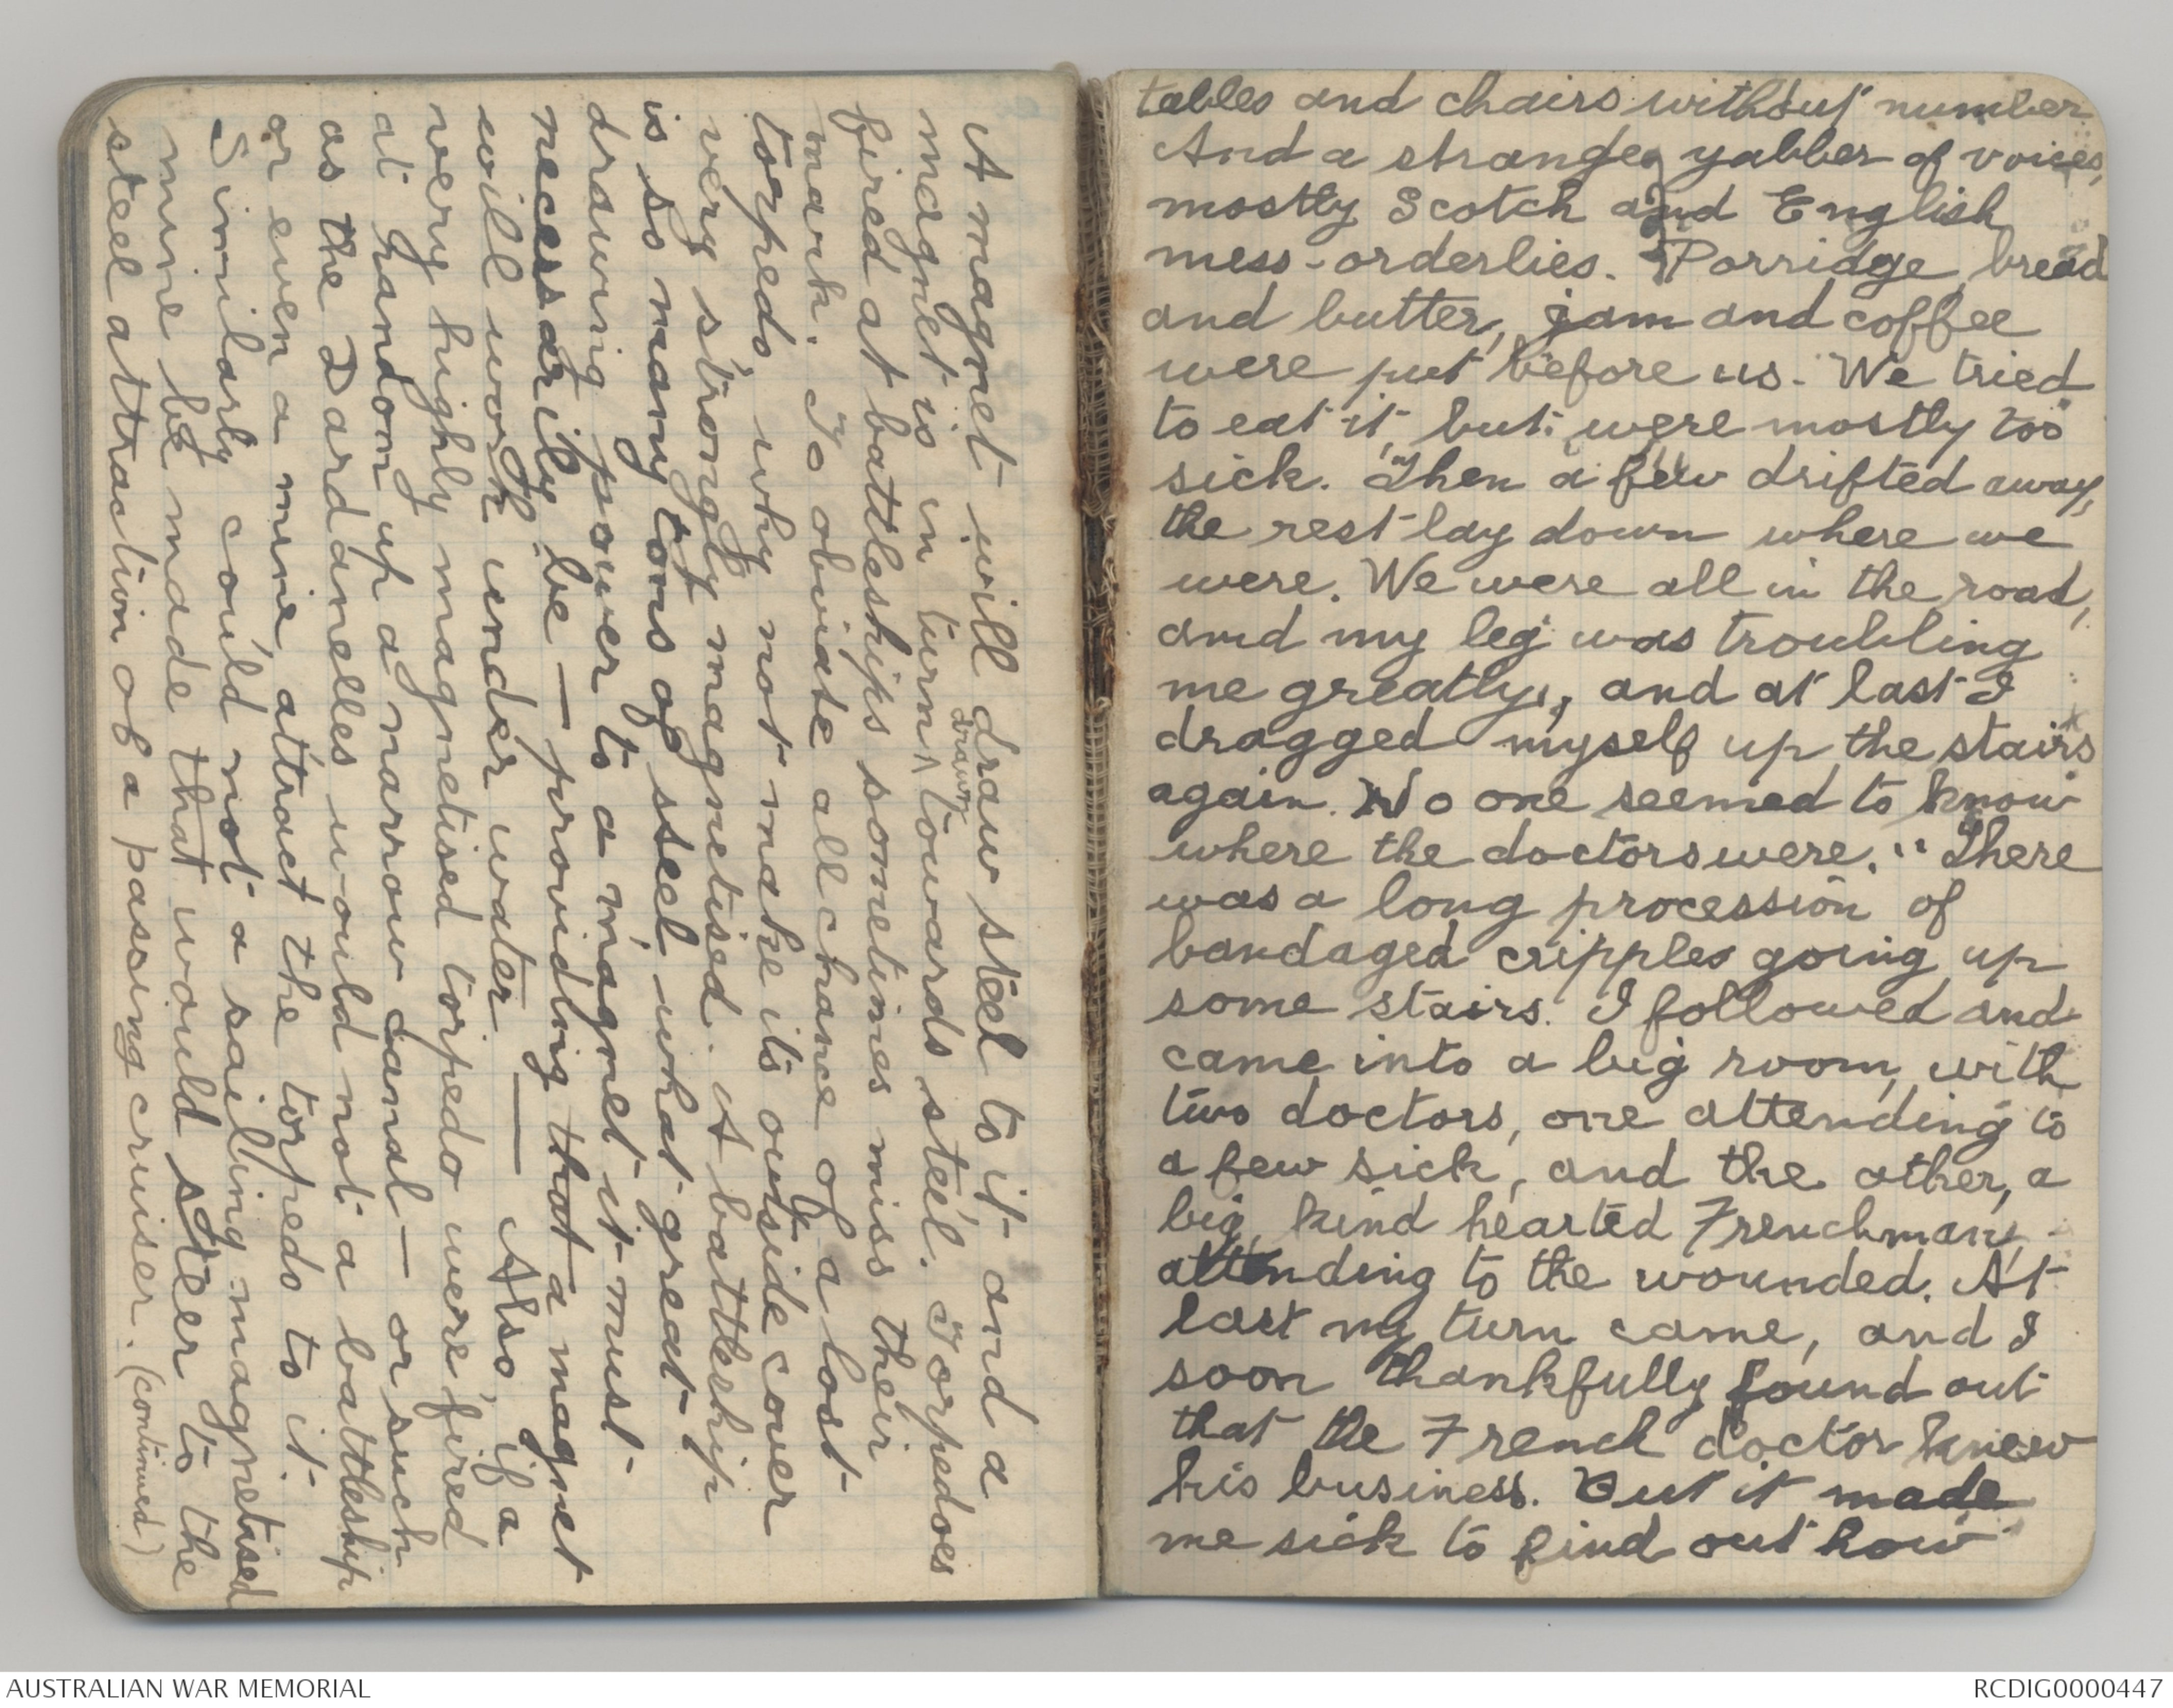 A magnet will draw steel to it and a
magnet is in turn ^drawn towards steel. Torpedoes
fired at battleships sometimes miss their
mark. To obviate all chance of a lost
torpedo, why not make its outside cover
very strongly magnetised. A battleship
is so many tons of steel what great
drawing power to a magnet it must
necessarily be — providing that a magnet
will work under water — Also, if a
very highly magnetised torpedo were fired
at random up a narrow canal — or such
as the Dardanelles would not a battleship
or even a mine, attract the torpedo to it.
Similarly could not a sailing magnetised
mine be made that would steer to the
steel attraction of a passing cruiser. (continued)
tables and chairs without number
And a strange yabber of voices,
mostly Scotch and English
mess-orderlies. Porridge, bread
and butter, jam and coffee
were put before us. We tried
to eat it, but were mostly too
sick. Then a few drifted away,
the rest lay down where we
were. We were all in the road,
and my leg was troubling
me greatly, and at last I
dragged myself up the stairs
again. No one seemed to know
where the doctors were. There
was a long procession of
bandaged cripples going up
some stairs. I followed and
came into a big room, with
two doctors, one attending to
a few sick, and the other, a
big, kind hearted Frenchman,
attending to the wounded. At
last my turn came, and I
soon thankfully found out
that the French doctor knew
his business. But it made
me sick to find out how
AUSTRALIAN WAR MEMORIAL
RCDIG0000447